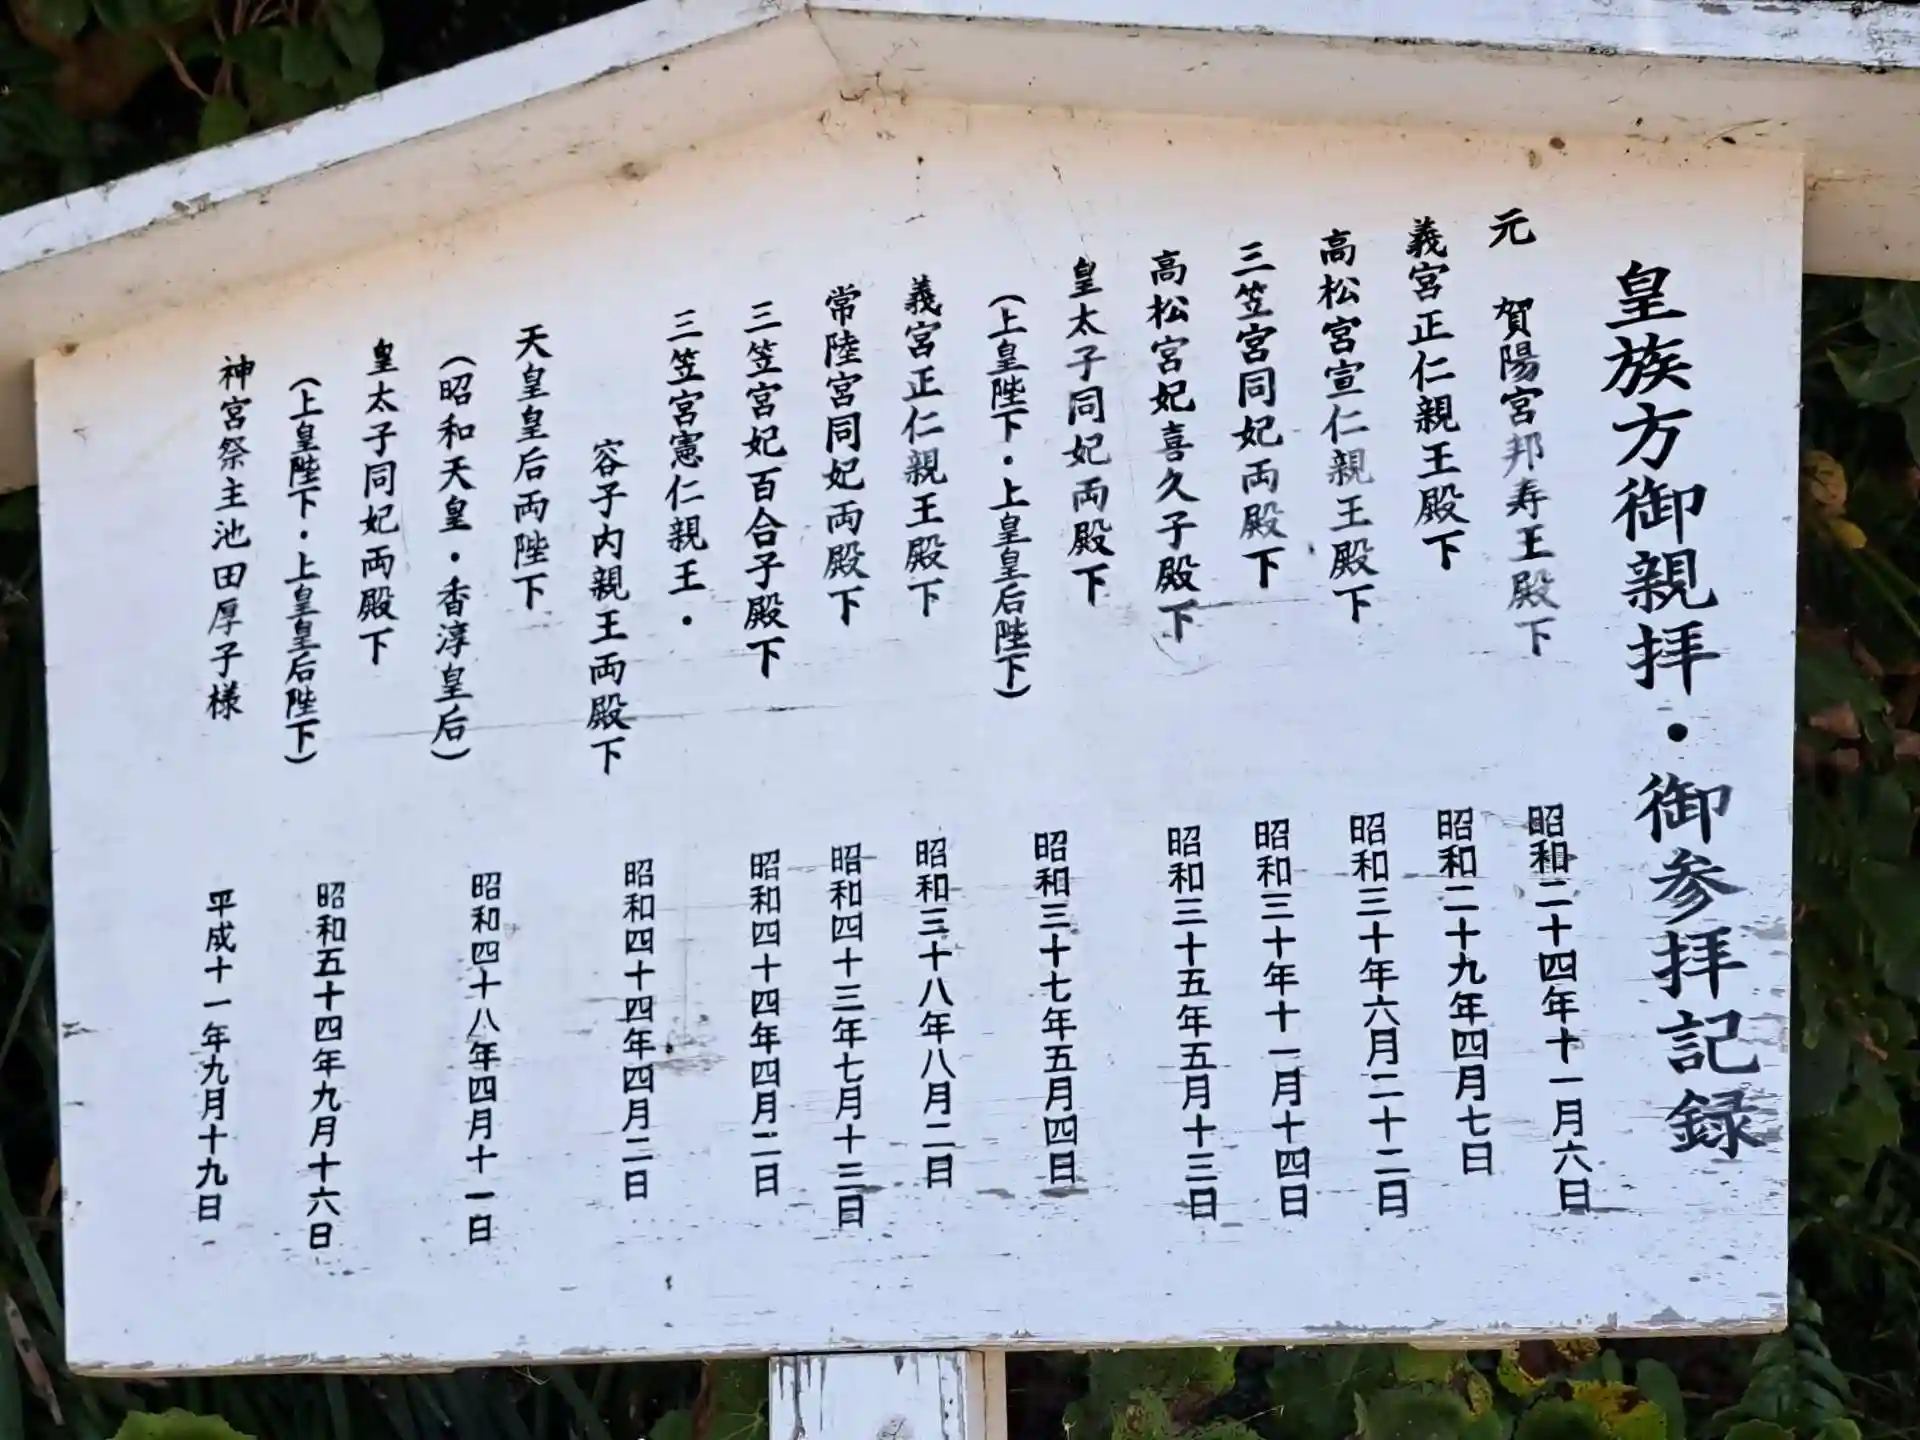 皇族方御親拝・御参拝記録
元　賀陽宮邦寿王殿下　昭和二十四年十一月六日
義宮正仁親王殿下　昭和二十九年四月七日
高松宮宣仁親王殿下　昭和三十年六月二十二日
三笠宮同妃両殿下　昭和三十年十一月十四日
高松宮妃喜久子殿下　昭和三十五年五月十三日
皇太子同妃両殿下
（上皇陛下・上皇皇后陛下）　昭和三十七年五月四日
義宮正仁親王殿下　昭和三十八年八月二日
常陸宮同妃両殿下　昭和四十三年七月十三日
三笠宮妃百合子殿下　昭和四十四年四月二日
三笠宮憲仁親王・
容子内親王両殿下　昭和四十四年四月二日
天皇皇后両陛下
（昭和天皇・香淳皇后）　昭和四十八年四月十一日
皇太子同妃両殿下
（上皇陛下・上皇皇后陛下）　昭和五十四年九月十六日
神宮祭主池田厚子様　平成十一年九月十九日